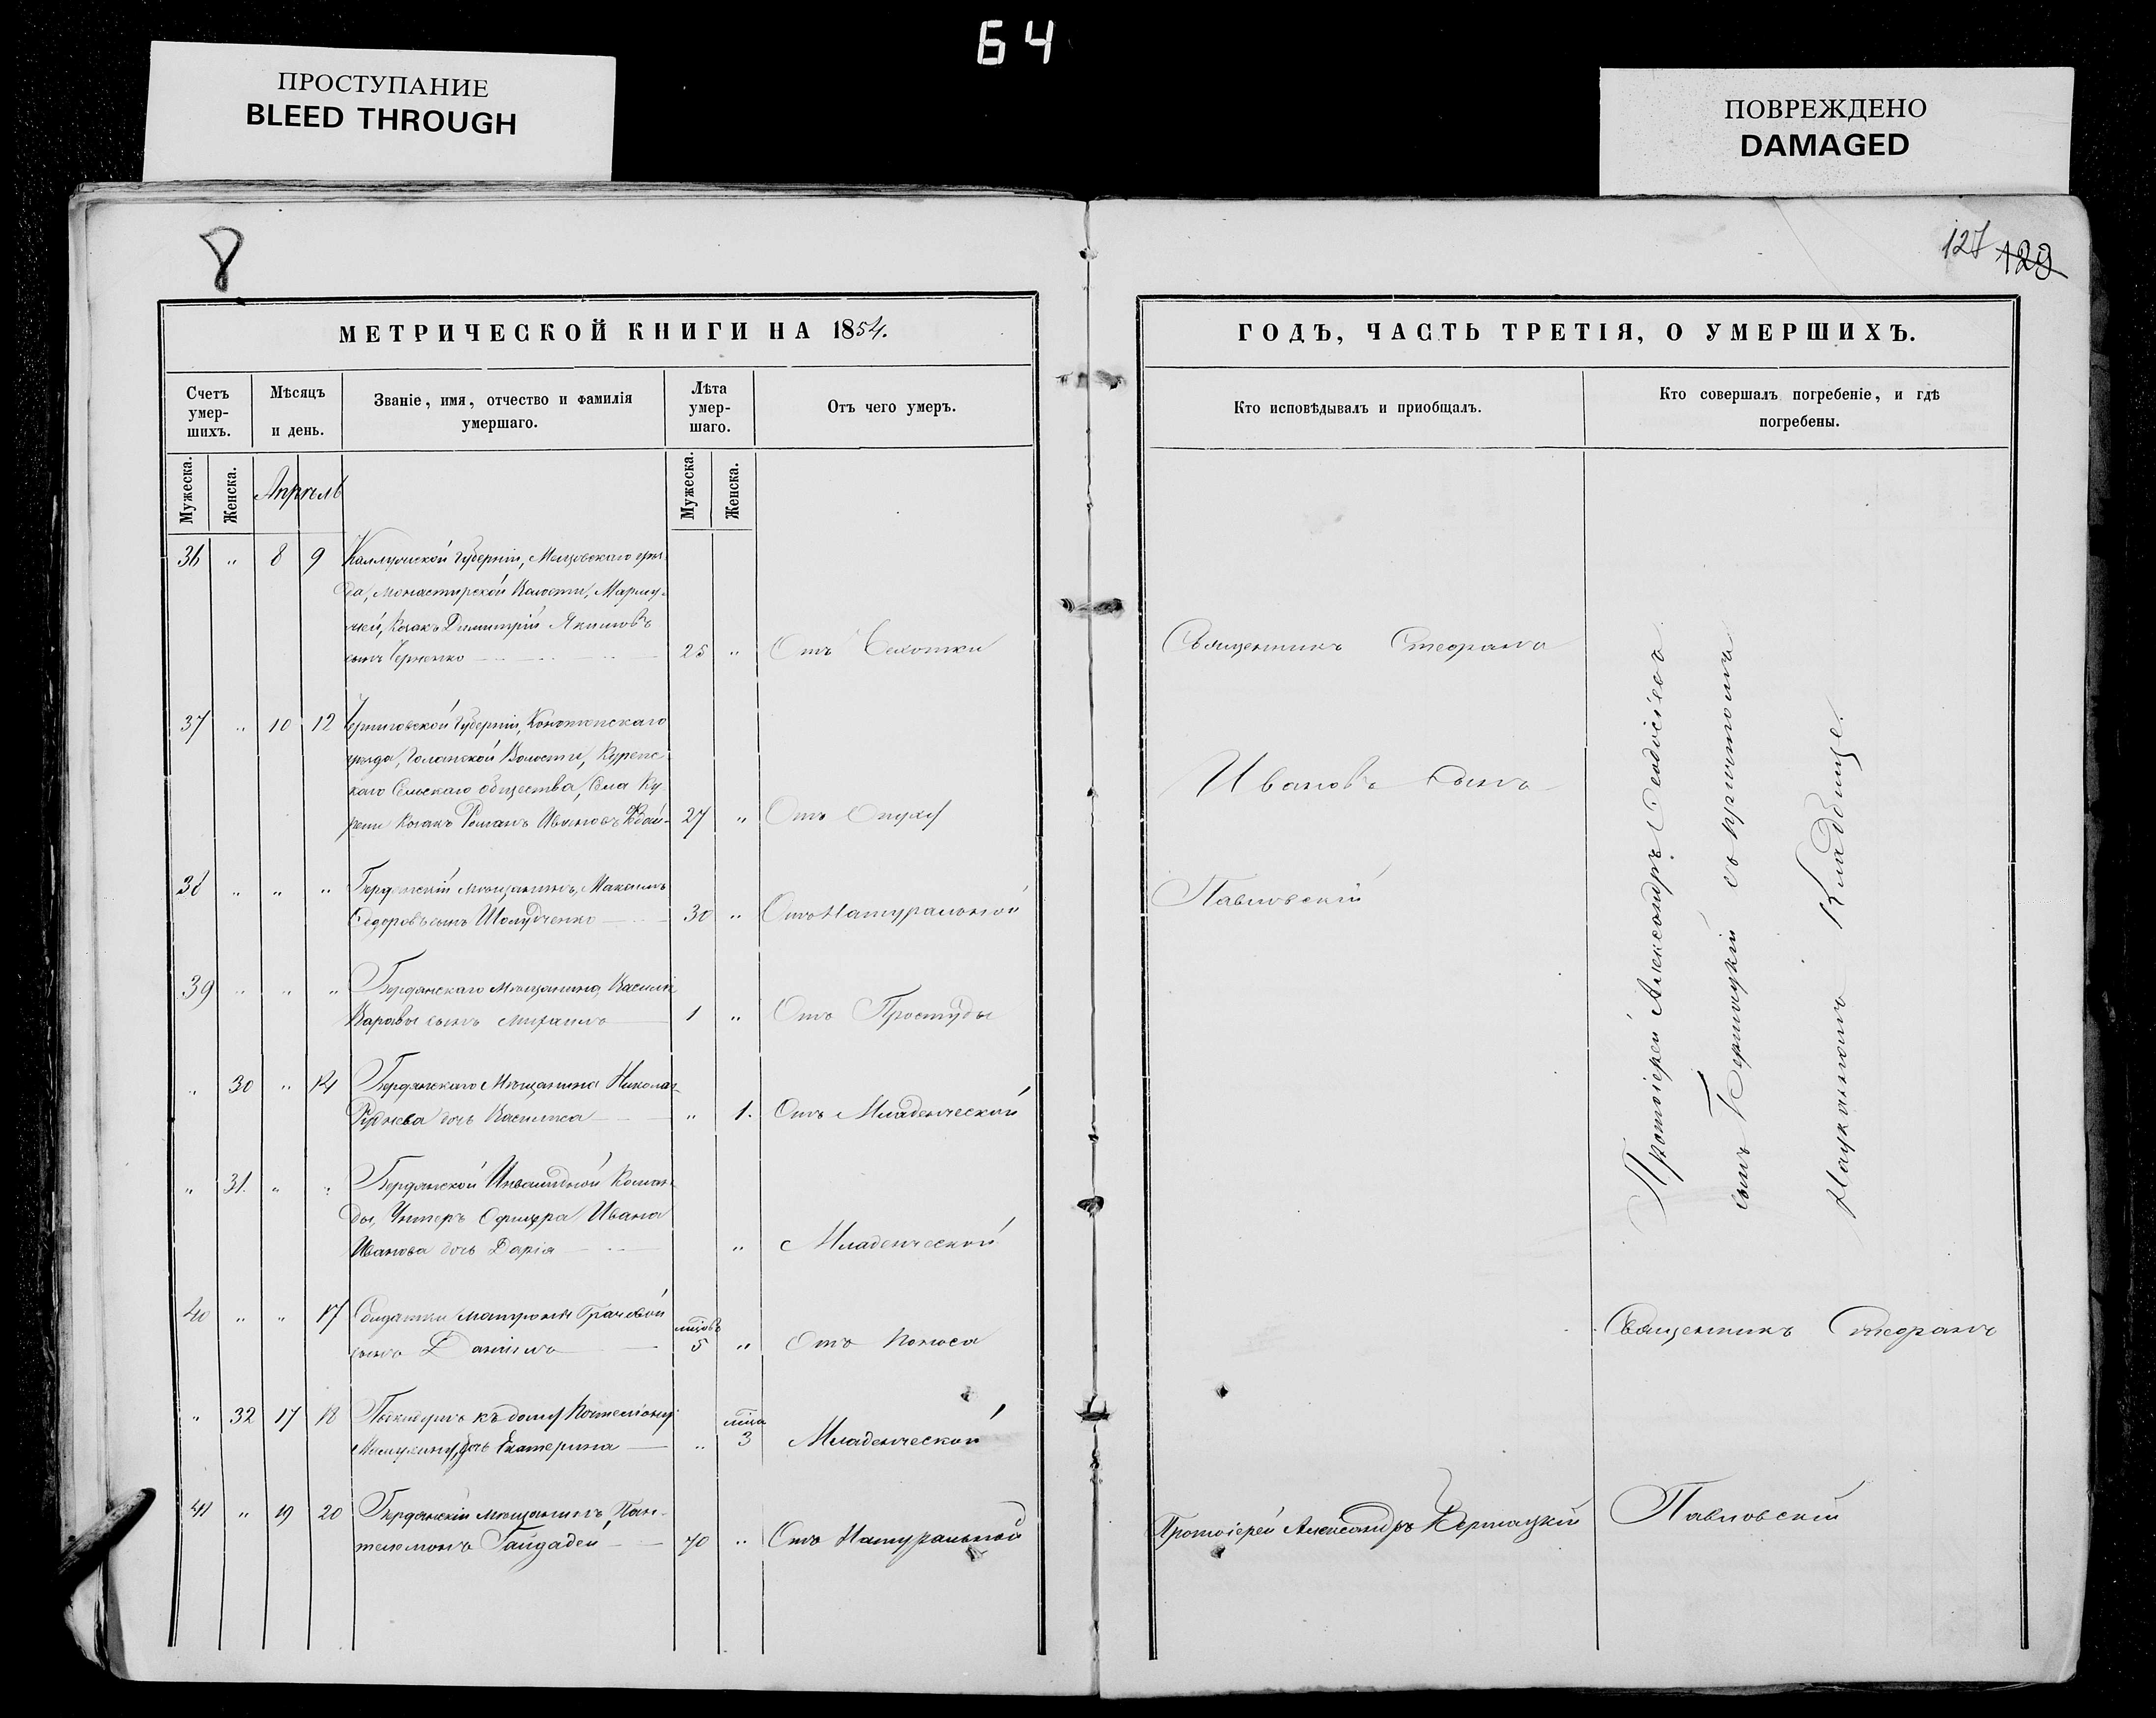 64
ПРОСТУПАНИЕ
BLEED THROUGH
ПОВРЕЖДЕНО
DAMAGED
8
127 129
МЕТРИЧЕСКОЙ КНИГИ НА 1854.
Счетъ умер-шихъ.
Мѣсяцъ и день.
Званіе, имя, отчество и фамилія умершаго.
Лѣта умер-шаго.
Отъ чего умеръ.
Мужеска.
Женска.
Апрѣль
Мужеска.
Женска.
36 " 8 9 Губерніи,
да, Монастирской Волости,
Козакъ Димитрій Якимовъ
сынъ Черненко 25 " Отъ Сухотки
37 " 10 12 Черниговской Губерніи, Конотопскаго
уезда, Волости,
каго Сельскаго общества, Села Ку-
рени Козакъ Романъ Ивановъ 27 " Отъ
38 " " " Бердянскій мѣщанинъ, Максимъ
Ѳедоровъ сынъ Шолудченко 30 " Отъ Натуральной
39 " " " Бердянскаго Мѣщанина, Василія
сынъ Михаилъ 1 " Отъ Простуды
" 30 " 14 Бердянскаго Мѣщанина Николая
Руднева дочь Василиса " 1. Отъ Младенческой
" 31. " " Бердянской Инвалидной Коман-
ды, Унтеръ Офицера Ивана
Иванова дочь Дарія " Младенческой
40 " " 17 Солдатки Матроны Грачовой
сынъ Даніилъ мцовъ 5 " Отъ поноса
" 32 17 18 къ дому
дочь Екатерина " мца 3 Младенческой
41 " 19 20 Бердянскій мѣщанинъ, Пан-
телемонъ Гайдадей 70 " Отъ Натуральной
ГОДЪ, ЧАСТЬ ТРЕТІЯ, О УМЕРШИХЪ.
Кто исповѣдывалъ и приобщалъ.
Кто совершалъ погребеніе, и гдѣ
погребены.
Священникъ Стефанъ
Ивановъ сынъ
Павловскій
Протоіерей Александръ
Протоіерей Александръ Ѳеодосіевъ
сынъ съ причтомъ
Кладбище.
Священникъ Стефанъ
Павловскій